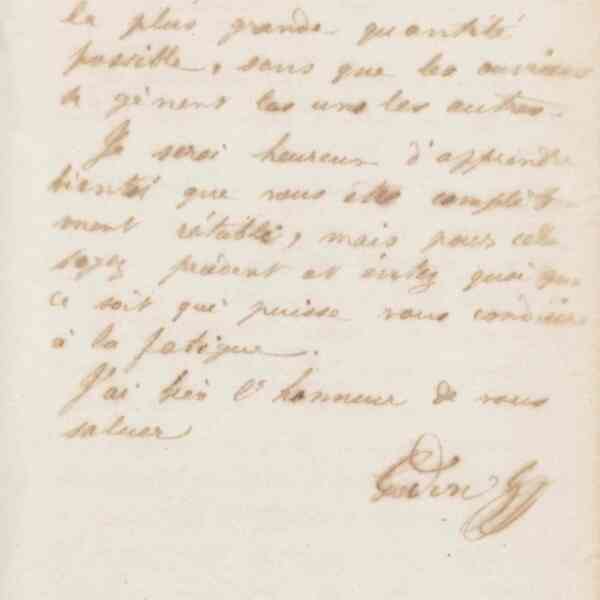 la plus grande quantité
possible, sans que les ouvriers
se gênent les uns les autres.
Je serai heureux d'apprendre
bientôt que vous êtes complète-
ment rétabli, mais pour cela
soyez prudent et évitez quoi que
ce soit qui puisse vous conduire
à la fatigue.
J'ai bien l'honneur de vous
saluer
Godin